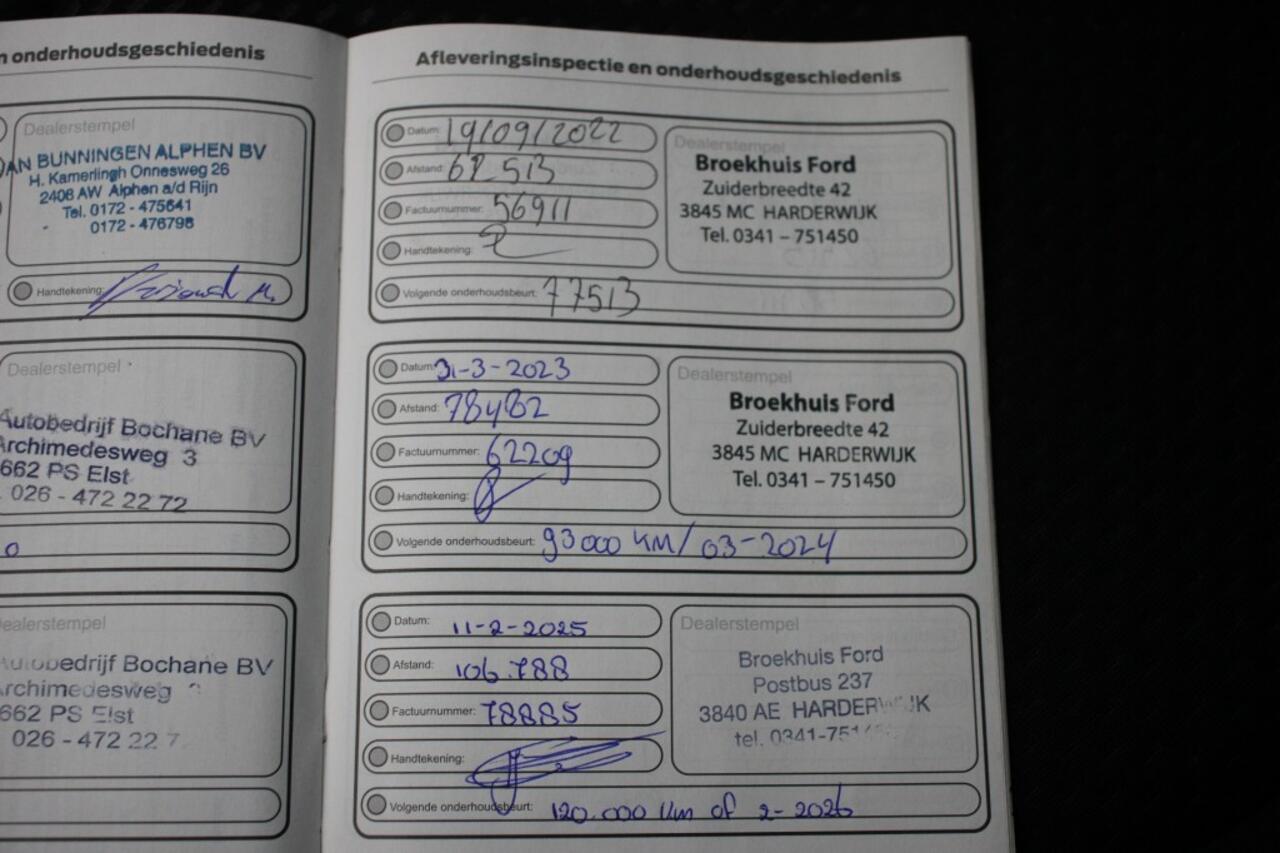 n onderhoudsgeschiedenis
Dealerstempel
AN BUNNINGEN ALPHEN BV
H. Kamerlingh Onnesweg 26
2408 AW Alphen a/d Rijn
Tel. 0172 - 475641
0172 - 476798
Handtekening:
Dealerstempel
Autobedrijf Bochane BV
Archimedesweg 3
662 PS Elst
026 - 472 22 72
0
ealerstempel
Autobedrijf Bochane BV
rchimedesweg
662 PS Elst
026 - 472 22 7
Afleveringsinspectie en onderhoudsgeschiedenis
Datum: 19/09/2022
Afstand: 62513
Factuurnummer: 56911
Handtekening:
Volgende onderhoudsbeurt: 77513
Dealerstempel
Broekhuis Ford
Zuiderbreedte 42
3845 MC HARDERWIJK
Tel. 0341 – 751450
Datum: 31-3-2023
Afstand: 78482
Factuurnummer: 62209
Handtekening:
Volgende onderhoudsbeurt: 93000 KM/03-2024
Dealerstempel
Broekhuis Ford
Zuiderbreedte 42
3845 MC HARDERWIJK
Tel. 0341 – 751450
Datum: 11-2-2025
Afstand: 106.788
Factuurnummer: 78885
Handtekening:
Volgende onderhoudsbeurt: 120.000 km of 2-2026
Dealerstempel
Broekhuis Ford
Postbus 237
3840 AE HARDERWIJK
tel. 0341-751